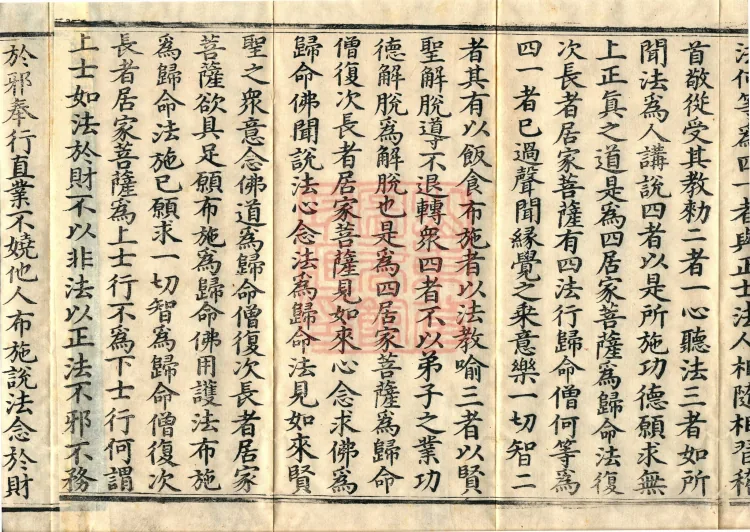 法何等為四一者與正士法人相隨相習稽
首敬從受其教勑二者一心聽法三者如所
聞法為人講說四者以是所施功德願求無
上正真之道是為四居家菩薩為歸命法復
次長者居家菩薩有四法行歸命僧何等為
四一者已過聲聞緣覺之乘意樂一切智二
者其有以飯食布施者以法教喻三者以賢
聖解脫導不退轉眾四者不以弟子之業功
德解脫為解脫也是為四居家菩薩為歸命
僧復次長者居家菩薩見如來心念求佛為
歸命佛聞說法心念法為歸命法見如來賢
聖之眾意念佛道為歸命僧復次長者居家
菩薩欲具足願布施為歸命佛用護法布施
為歸命法施已願求一切智為歸命僧復次
長者居家菩薩為上士行不為下士行何謂
上士如法於財不以非法以正法不邪不務
於邪奉行直業不嬈他人布施說法念於財